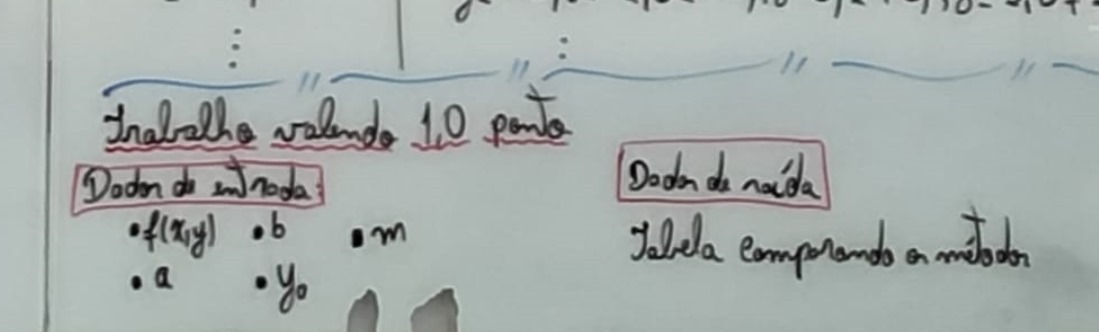 Trabalho valendo 1,0 ponto
Dados de entrada:
• f(x,y) • b • m
• a • y₀
Dados de saída
Tabela comparando os métodos